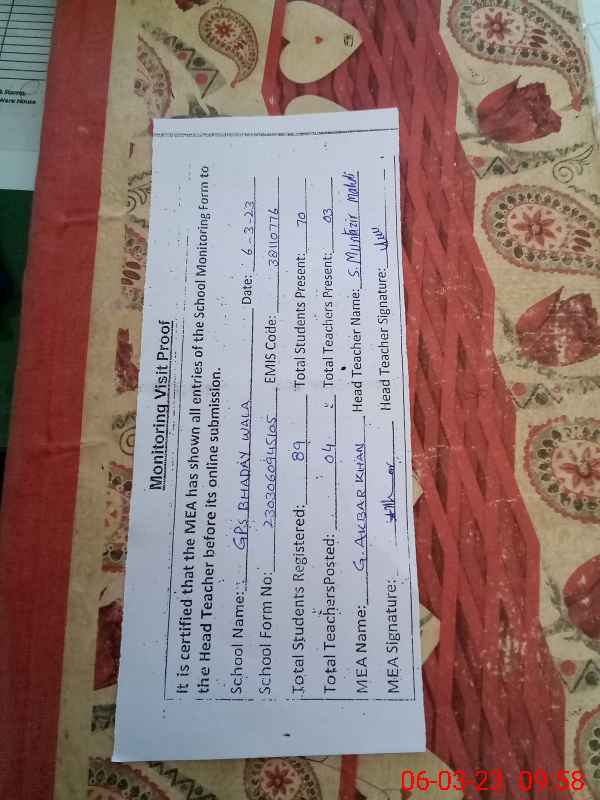 & Stamp
Ware House
Monitoring Visit Proof
It is certified that the MEA has shown all entries of the School Monitoring Form to
the Head Teacher before its online submission.
School Name: GPS BHADAY WALA Date: 6-3-23
School Form No: 2303060945105 EMIS Code: 38110776
Total Students Registered: 89 Total Students Present: 70
Total TeachersPosted: 04 Total Teachers Present: 03
MEA Name: G. AKBAR KHAN Head Teacher Name: S. Muntazir Mahdi
MEA Signature: Head Teacher Signature:
06-03-23 09:58